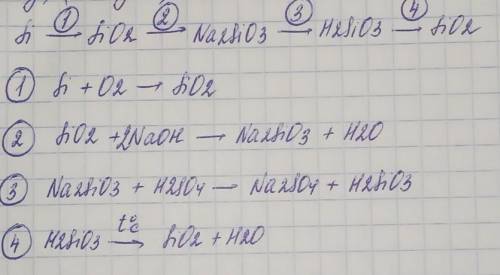 Si ①→ SiO2 ②→ Na2SiO3 ③→ H2SiO3 ④→ SiO2
① Si + O2 → SiO2
② SiO2 + 2NaOH → Na2SiO3 + H2O
③ Na2SiO3 + H2SO4 → Na2SO4 + H2SiO3
④ H2SiO3 t°C→ SiO2 + H2O